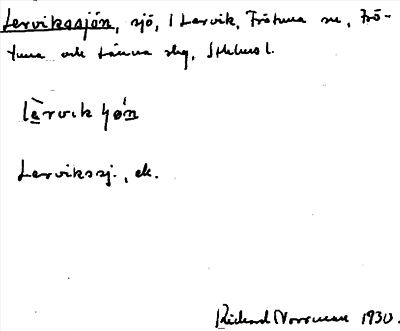 Lervikssjön, sjö, i Lervik, Frötuna sn, Frö-
tuna och Länna skg, Sthlms l.
lèrvik ʃø̀n
Lervikssj., ek.
Richard Norrman 1930.